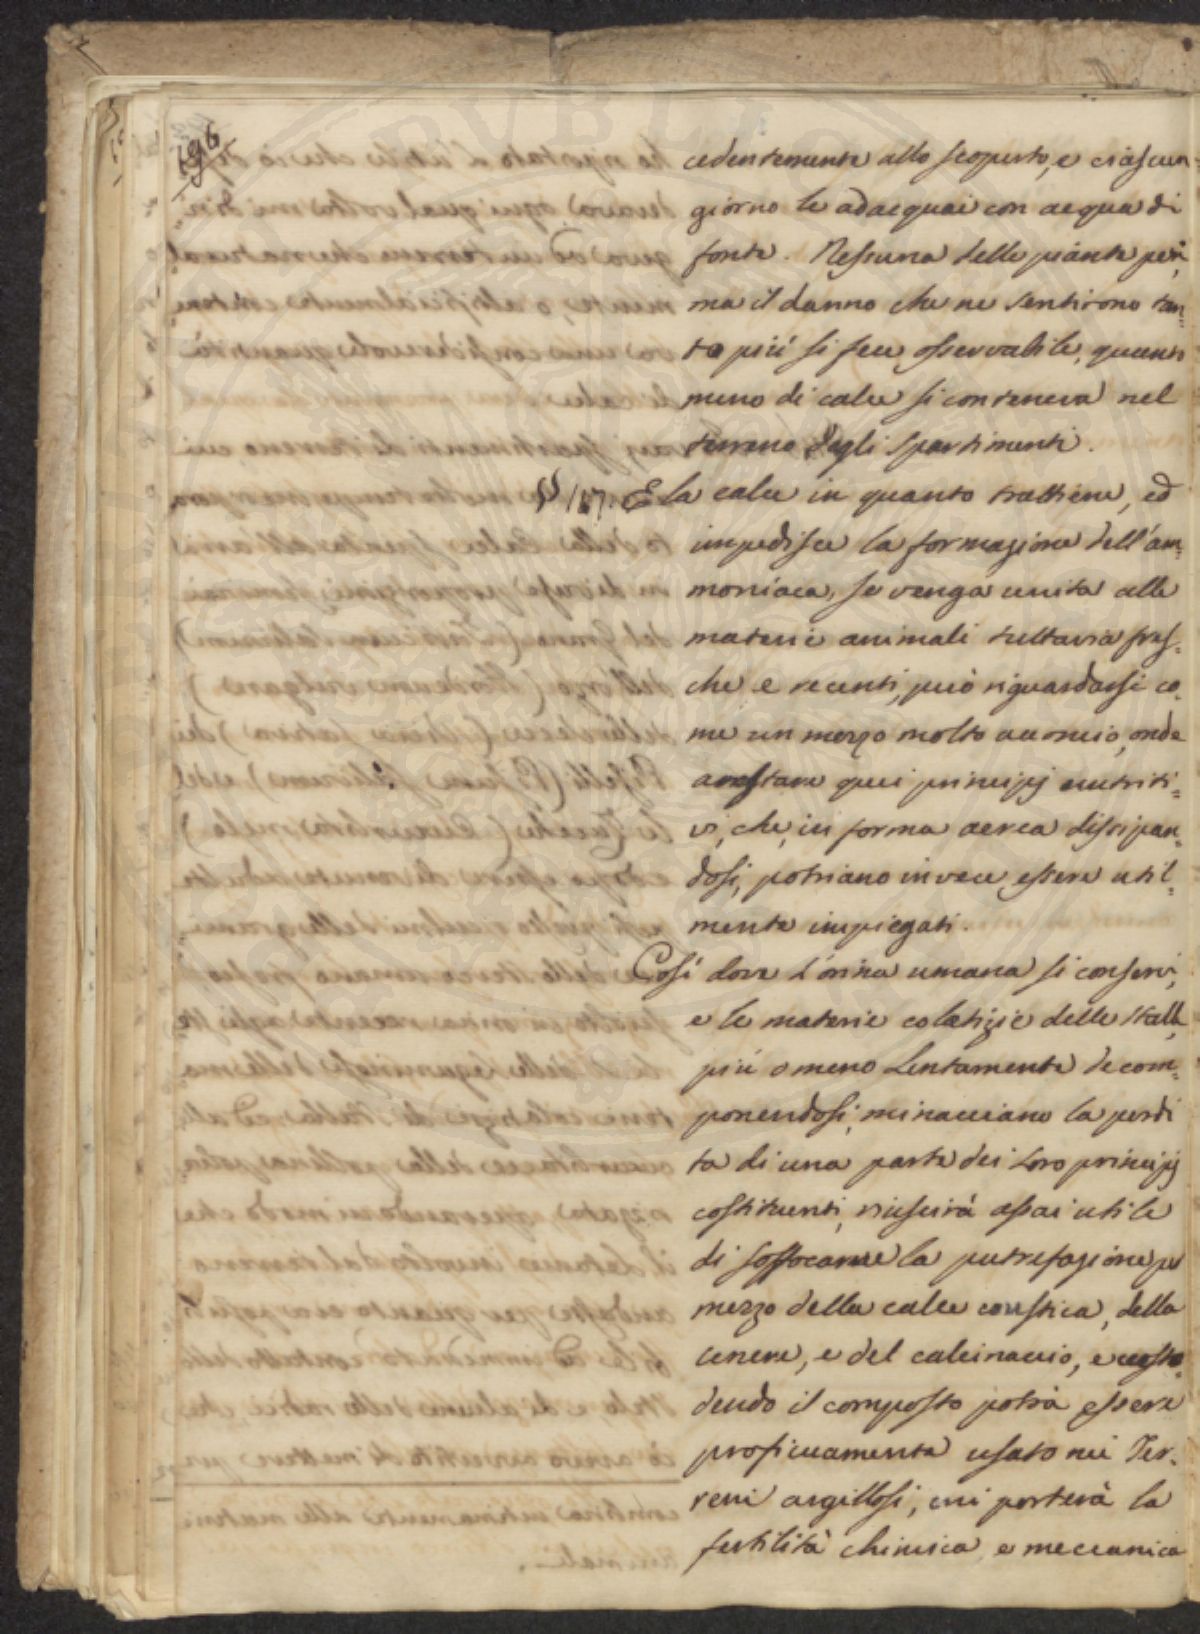 196
cedentemente allo scoperto, e ciascun
giorno le adacquai con acqua di
fonte. Nessuna delle piante perì,
ma il danno che ne sentirono tan=
to più si fece osservabile, quanto
meno di calce si conteneva nel
terreno degli spartimenti.
§ 187. E la calce in quanto trattiene, ed
impedisce la formazione dell'am=
moniaca, se venga unita alle
materie animali tuttavia fres=
che e recenti, può riguardarsi co=
me un mezzo molto acconcio, onde
arrestare quei principj nutriti=
vi, che, in forma aerea dissipan=
dosi, potriano invece essere util=
mente impiegati.
Così dove l'orina umana si conservi,
e le materie colatizie delle stalle,
più o meno lentamente decom=
ponendosi, minacciano la perdi
ta di una parte dei loro principj
costituenti, riuscirà assai utile
di soffocarne la putrefazione per
mezzo della calce caustica, della
cenere, e del calcinaccio, e
dendo il composto potrà essere
proficuamente usato nei Ter=
reni argillosi, cui porterà la
fertilità chimica e meccanica